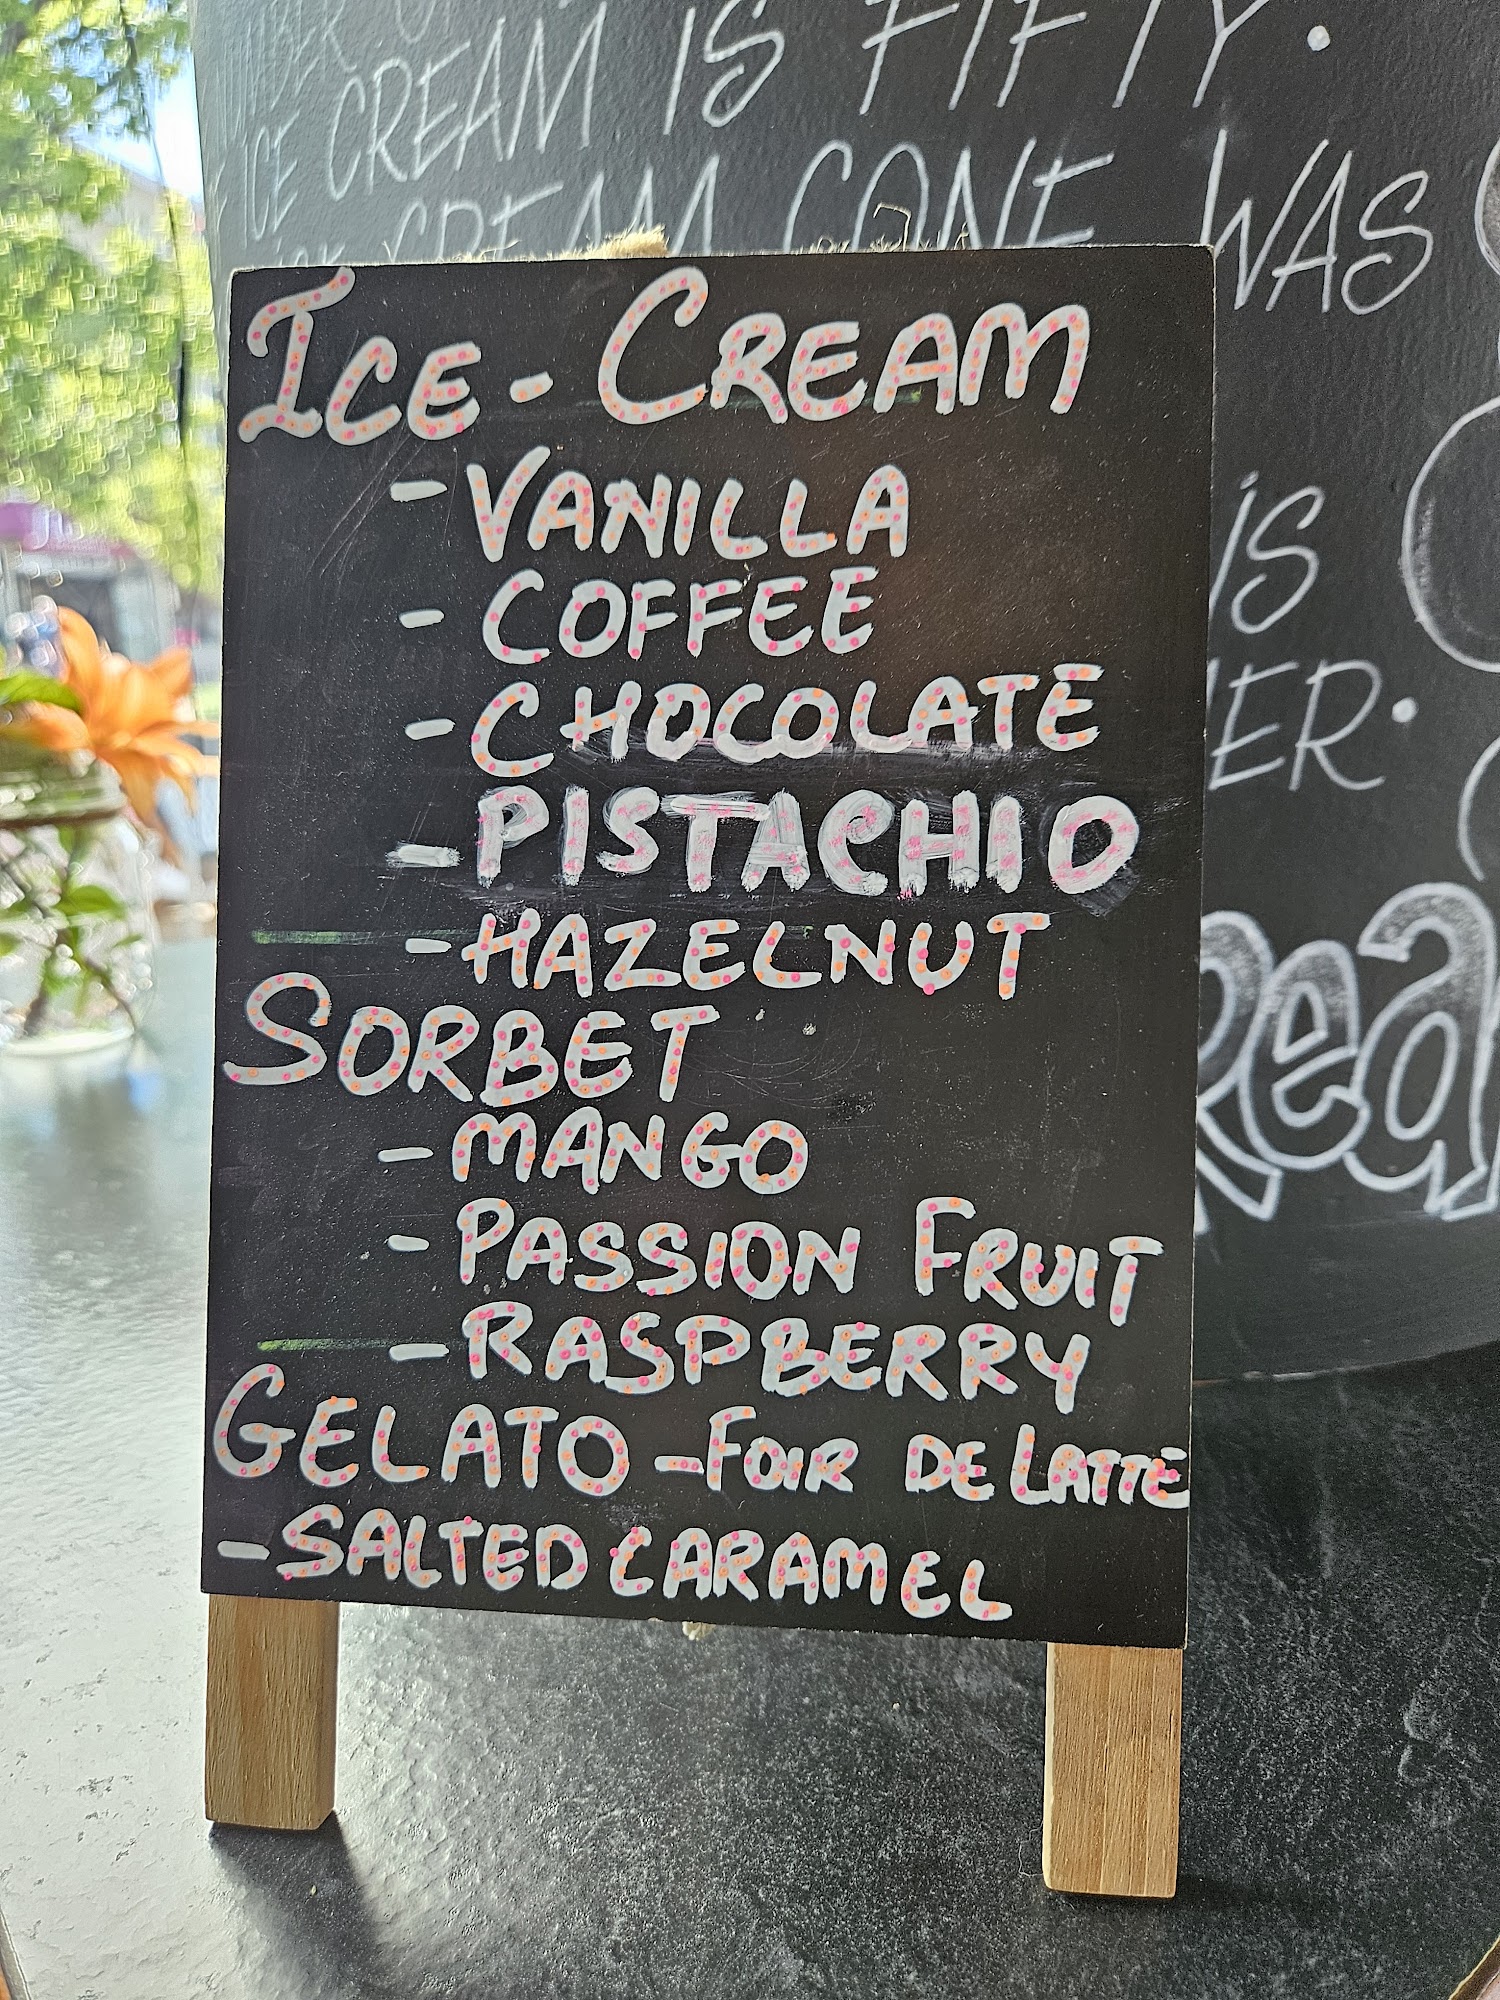 ICE CREAM IS FIFTY.
CREAM CONE WAS
IS
ER.
Rea
ICE - CREAM
- VANILLA
- COFFEE
- CHOCOLATE
- PISTACHIO
- HAZELNUT
SORBET
- MANGO
- PASSION FRUIT
- RASPBERRY
GELATO - FOIR DE LATTE
- SALTED CARAMEL